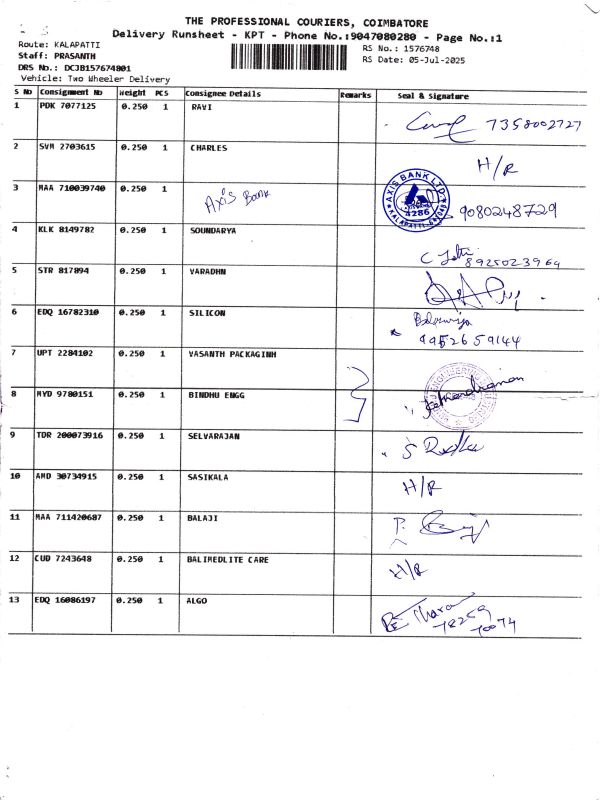 THE PROFESSIONAL COURIERS, COIMBATORE
Delivery Runsheet - KPT - Phone No.:9047080280 - Page No.:1
Route: KALAPATTI
RS No.: 1576748
Staff: PRASANTH
RS Date: 05-Jul-2025
DRS No.: DCJB157674801
Vehicle: Two Wheeler Delivery
S No Consignment No Weight PCS Consignee Details Remarks Seal & Signature
1 PDK 7077125 0.250 1 RAVI 7358002727
2 SVM 2703615 0.250 1 CHARLES H/R
3 MAA 710039740 0.250 1 Axis Bank AXIS BANK LTD. 4286 9080248729
4 KLK 8149782 0.250 1 SOUNDARYA 8925023964
5 STR 817894 0.250 1 VARADHN
6 EDQ 16782310 0.250 1 SILICON 9952659144
7 UPT 2284102 0.250 1 VASANTH PACKAGINH
8 MYD 9780151 0.250 1 BINDHU ENGG
9 TDR 200073916 0.250 1 SELVARAJAN
10 AMD 30734915 0.250 1 SASIKALA H/R
11 MAA 711420687 0.250 1 BALAJI
12 CUD 7243648 0.250 1 BALIMEDLITE CARE H/R
13 EDQ 16086197 0.250 1 ALGO